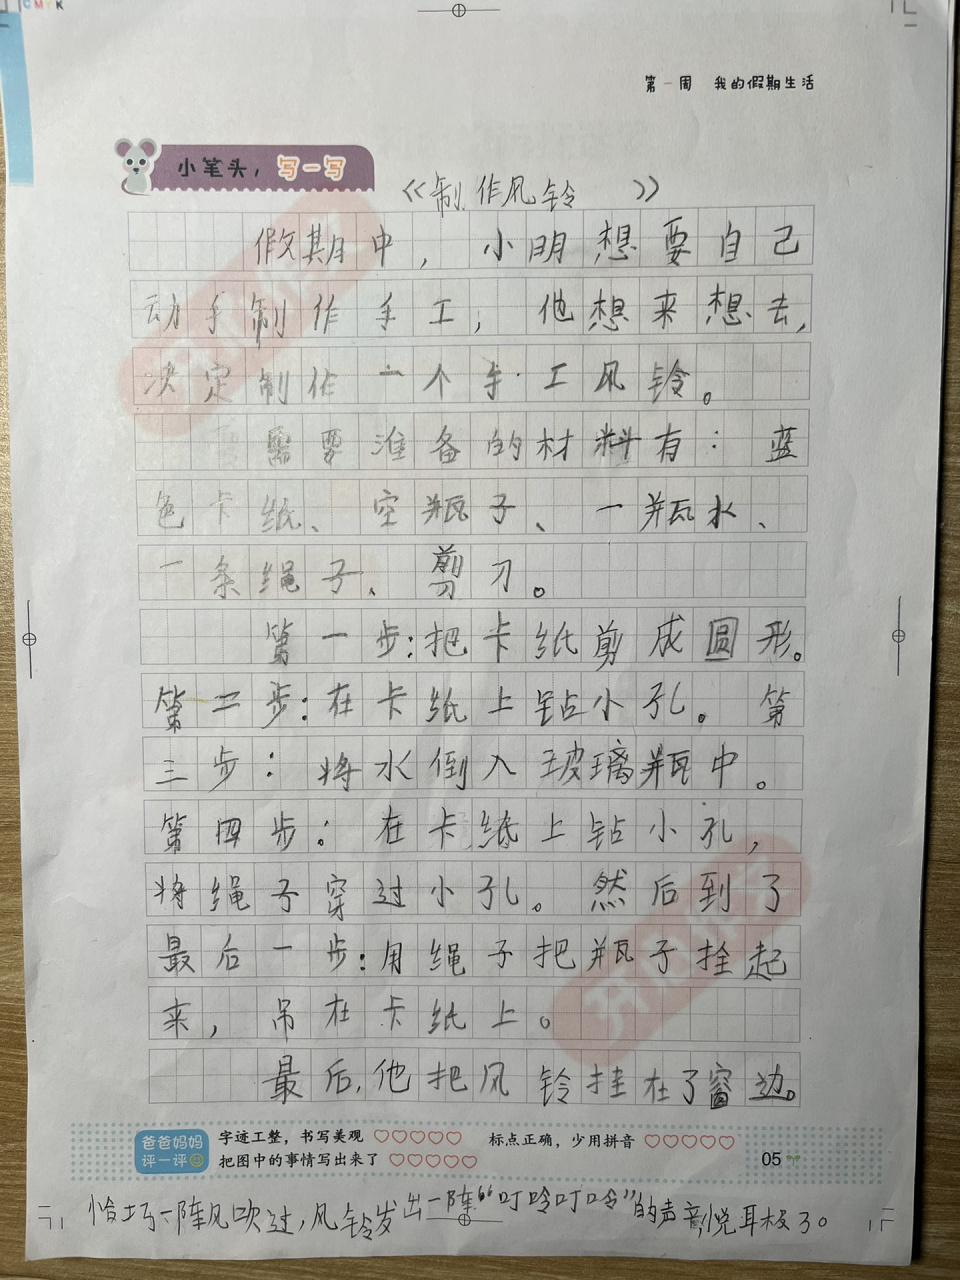 CMYK
第一周 我的假期生活
小笔头，写一写
《制作风铃》
假期中，小明想要自己
动手制作手工，他想来想去，
决定制作一个手工风铃。
需要准备的材料有：蓝
色卡纸、空瓶子、一瓶水、
一条绳子、剪刀。
第一步：把卡纸剪成圆形。
第二步：在卡纸上钻小孔。第
三步：将水倒入玻璃瓶中。
第四步：在卡纸上钻小孔，
将绳子穿过小孔。然后到了
最后一步：用绳子把瓶子拴起
来，吊在卡纸上。
最后，他把风铃挂在了窗边。
爸爸妈妈
评一评
字迹工整，书写美观
标点正确，少用拼音
把图中的事情写出来了
05
恰巧一阵风吹过，风铃发出一阵“叮呤叮呤”的声音，悦耳极了。